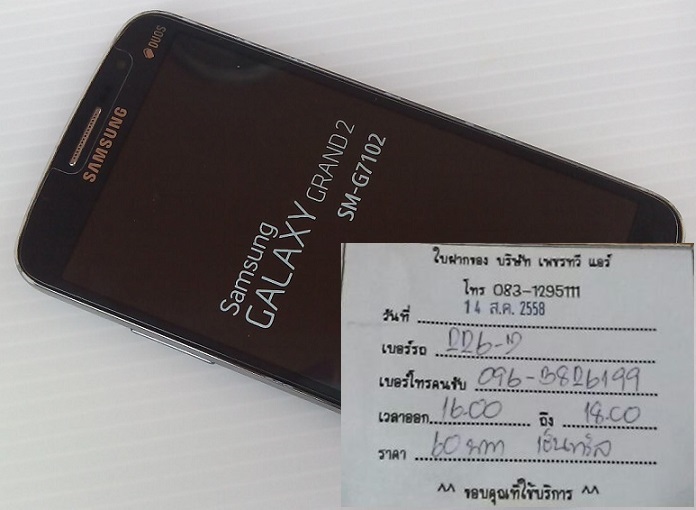 DUOS
SAMSUNG
Samsung
GALAXY GRAND 2
SM-G7102
ใบฝากของ บริษัท เพชรทวี แอร์
โทร 083-1295111
วันที่ 14 ส.ค. 2558
เบอร์รถ 226-2
เบอร์โทรคนขับ 096-3826199
เวลาออก 16.00 ถึง 18.00
ราคา 60 บาท เซ็นทรัล
^^ ขอบคุณที่ใช้บริการ ^^